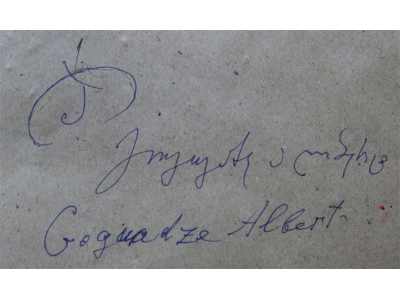 გოგუაძე ალბერტ
Goguadze Albert